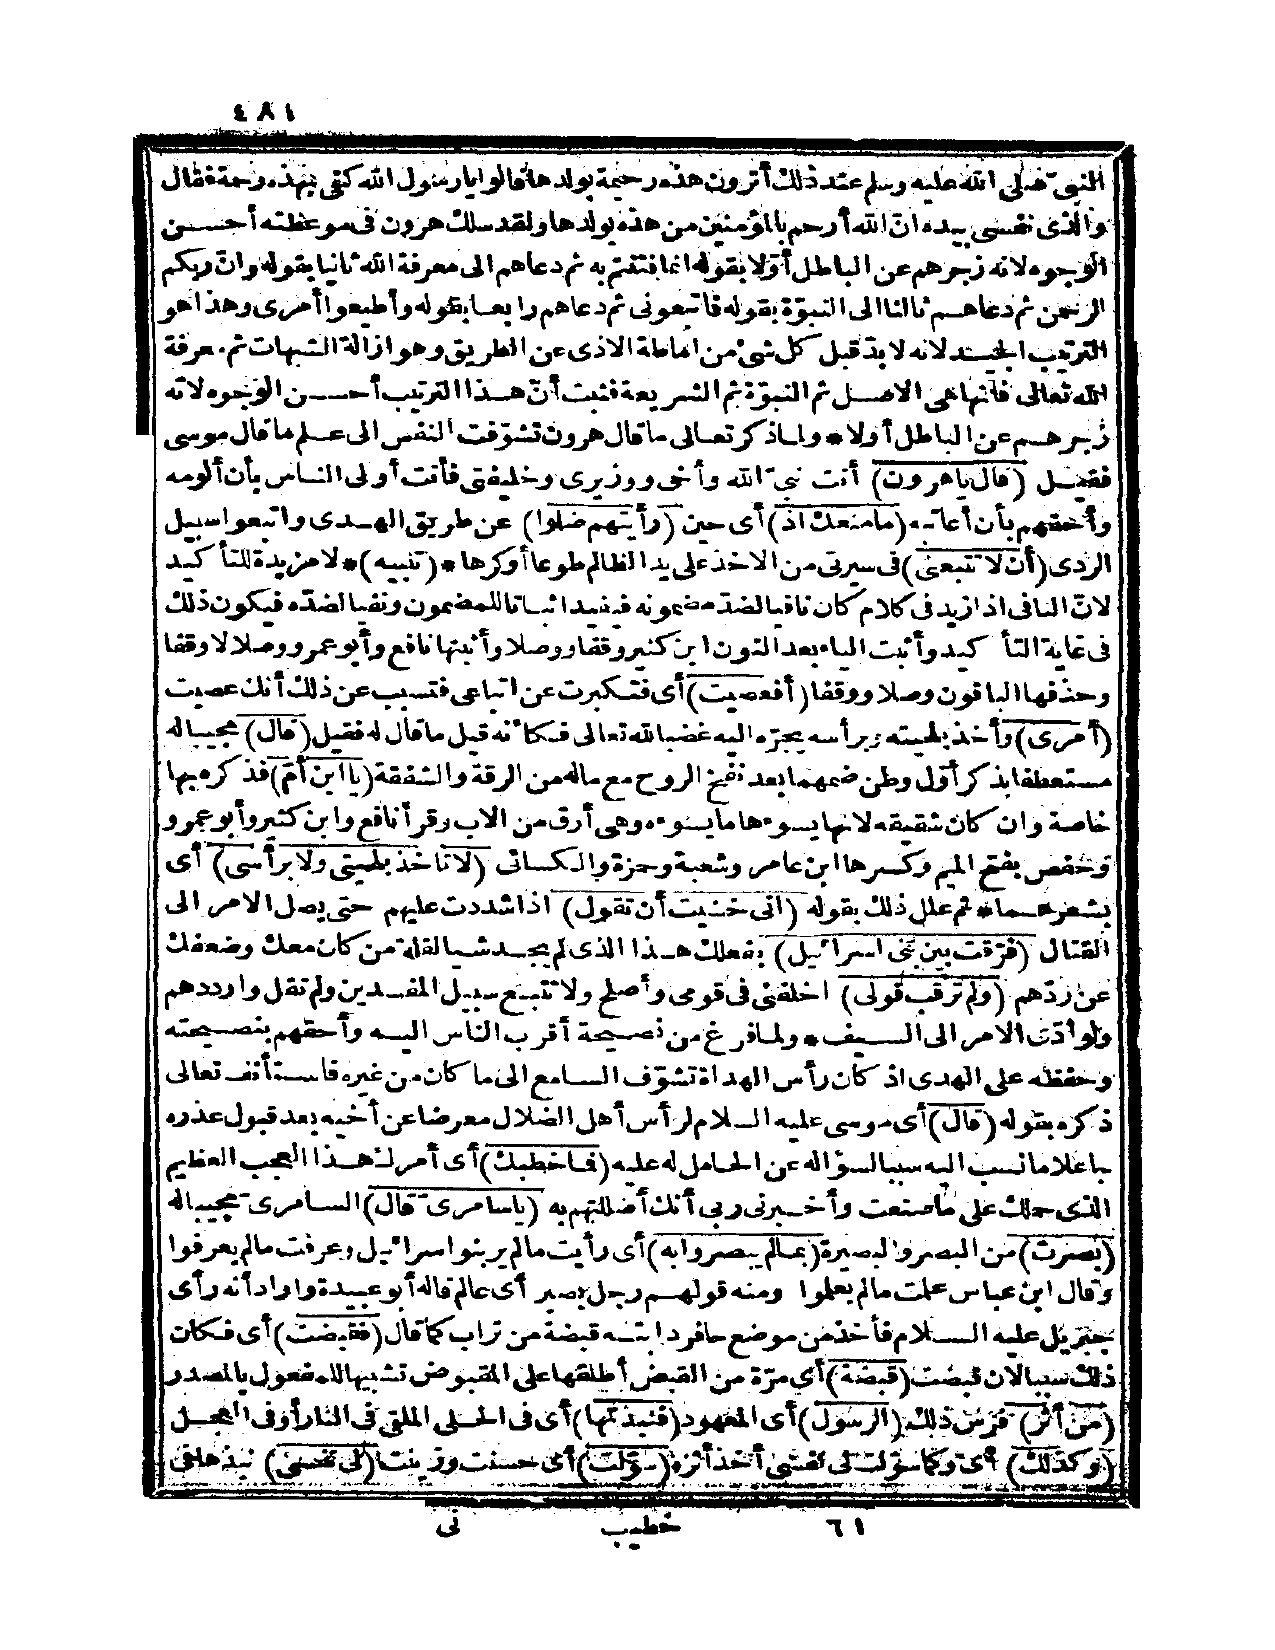 ٤٨١
النبىّ صلى الله عليه وسلم عند ذلك أترون هذه رحيمة بولدها قالوا يا رسول الله كفى بهذه رحمة فقال
والذى نفسى بيده انّ الله أرحم بالمؤمنين من هذه بولدها ولقد سلك هرون فى موعظته أحسن
الوجوه لانه زجرهم عن الباطل أوّلا بقوله انما فتنتم به ثم دعاهم الى معرفة الله ثانيا بقوله وانّ ربكم
الرحمن ثم دعاهم ثالثا الى النبوّة بقوله فاتبعونى ثم دعاهم رابعا بقوله وأطيعوا أمرى وهذا هو
الترتيب الجيد لانه لا بدّ قبل كل شئ من اماطة الاذى عن الطريق وهو ازالة الشبهات ثم معرفة
الله تعالى فانها هى الاصل ثم النبوّة ثم الشريعة فثبت أنّ هذا الترتيب أحسن الوجوه لانه
زجرهم عن الباطل أولا * ولما ذكر تعالى ما قال هرون تشوّفت النفس الى علم ما قال موسى
فقيل (قال يا هرون) أنت نبىّ الله وأخى ووزيرى وخليفتى فأنت أولى الناس بأن ألومه
وأحقهم بأن أعاتبه (ما منعك اذ) أى حين (رأيتهم ضلوا) عن طريق الهدى واتبعوا سبيل
الردى (أن لا تتبعنى) فى سيرتى من الاخذ على يد الظالم طوعا أو كرها * (تنبيه) * لا مزيدة للتأكيد
لانّ النافى اذا زيد فى كلام كان نافيا لضدّ مضمونه فيفيد اثباتا للمضمون ونفيا لضدّه فيكون ذلك
فى غاية التأكيد وأثبت الياء بعد النون ابن كثير وقفا ووصلا وأثبتها نافع وأبو عمرو وصلا لا وقفا
وحذفها الباقون وصلا ووقفا (أفعصيت) أى فتكبرت عن اتباعى فتسبب عن ذلك أنك عصيت
(أمرى) وأخذ بلحيته وبرأسه يجرّه اليه غضبا لله تعالى فكأنه قيل ما قال له فقيل (قال) مجيبا له
مستعطفا بذكر أوّل وطن ضمهما بعد نفخ الروح مع ماله من الرقة والشفقة (يا ابن أمّ) فذكره بها
خاصة وان كان شقيقه لانها يسوءها ما يسوءه وهى أرق من الاب وقرأ نافع وابن كثير وأبو عمرو
وحفص بفتح الميم وكسرها ابن عامر وشعبة وحمزة والكسائى (لا تأخذ بلحيتى ولا برأسى) أى
بشعرهما * ثم علل ذلك بقوله (انى خشيت أن تقول) اذا شددت عليهم حتى يصل الامر الى
القتال (فرّقت بين بنى اسرائيل) بفعلك هذا الذى لم يجد شيا لقلة من كان معك وضعفك
عن ردّهم (ولم ترقب قولى) اخلفنى فى قومى وأصلح ولا تتبع سبيل المفسدين ولم تقل وارددهم
ولو أدّى الامر الى السيف * ولما فرغ من نصيحة أقرب الناس اليه وأحقهم بنصيحته
وحفظه على الهدى اذ كان رأس الهداة تشوّف السامع الى ما كان من غيره فاستأنف تعالى
ذكره بقوله (قال) أى موسى عليه السلام لرأس أهل الضلال معرضا عن أخيه بعد قبول عذره
جاعلا ما نسب اليه سببا لسؤاله عن الحامل له عليه (فما خطبك) أى أمرك هذا العجب العظيم
الذى حملك على ما صنعت وأخبرنى ربى أنك أضللتهم به (يا سامرى قال) السامرى مجيبا له
(بصرت) من البصر والبصيرة (بما لم يبصروا به) أى رأيت ما لم ير بنو اسرائيل وعرفت ما لم يعرفوا
وقال ابن عباس علمت ما لم يعلموا ومنه قولهم رجل بصير أى عالم قاله أبو عبيدة وأراد أنه رأى
جبريل عليه السلام فأخذ من موضع حافر دابته قبضة من تراب كما قال (فقبضت) أى فكان
ذلك سببا لان قبضت (قبضة) أى مرّة من القبض أطلقها على المقبوض تشبيها للمفعول بالمصدر
(من أثر) فرس ذلك (الرسول) أى المعهود (فنبذتها) أى فى الحلى الملقى فى النار أو فى العجل
(وكذلك) أى وكما سوّلت لى نفسى أخذ أثره (سوّلت) أى حسنت وزينت (لى نفسى) نبذها فى
٦١ خطيب نى